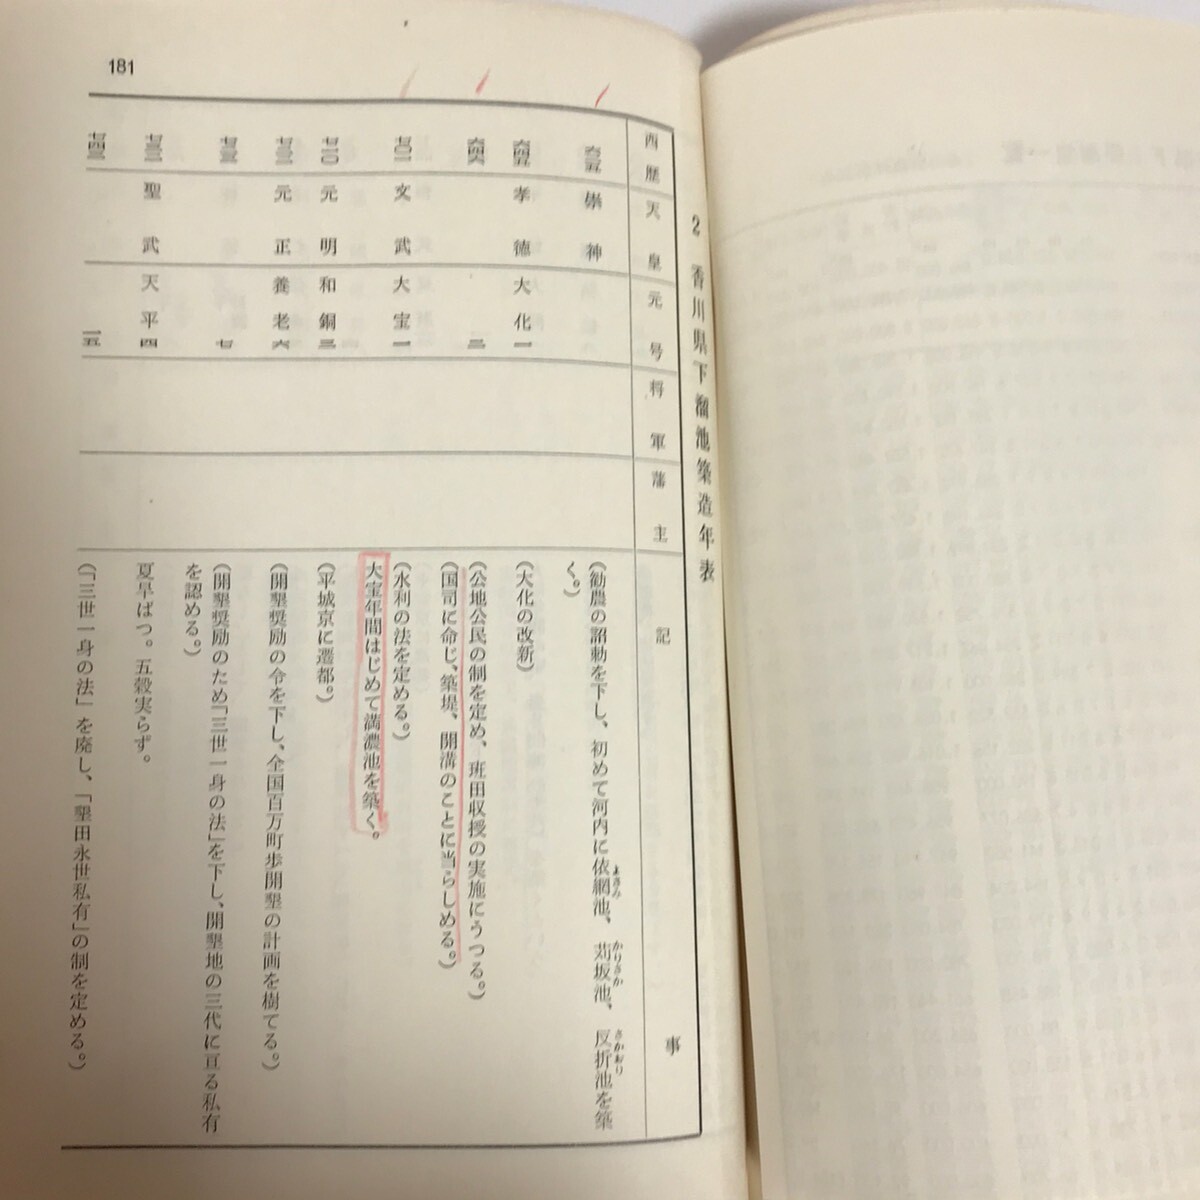 181
2 香川県下溜池築造年表
西歴 天皇 元号 将軍 藩主 記事
崇神 (勧農の詔勅を下し、初めて河内に依網池、苅坂池、反折池を築
よさみ かりさか さかおり
く。)
六四五 孝徳 大化一 (大化の改新)
六四六 二 (公地公民の制を定め、班田収授の実施にうつる。)
(国司に命じ、築堤、開溝のことに当らしめる。)
七〇一 文武 大宝一 (水利の法を定める。)
大宝年間はじめて満濃池を築く。
七一〇 元明 和銅三 (平城京に遷都。)
七二二 元正 養老六 (開墾奨励の令を下し、全国百万町歩開墾の計画を樹てる。)
七二三 七 (開墾奨励のため「三世一身の法」を下し、開墾地の三代に亘る私有
を認める。)
七三二 聖武 天平四 夏旱ばつ。五穀実らず。
七四三 一五 (「三世一身の法」を廃し、「墾田永世私有」の制を定める。)